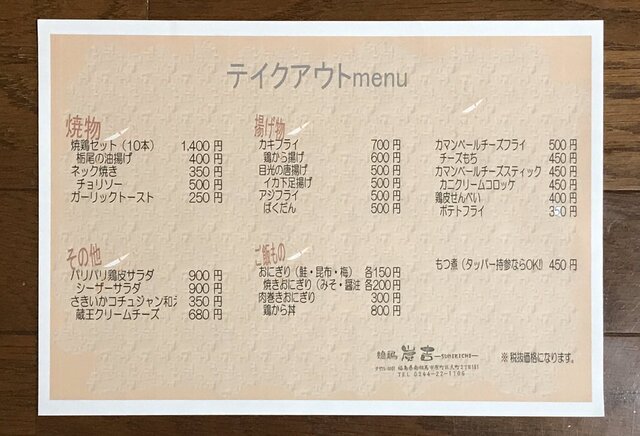 テイクアウトmenu
焼物
焼鶏セット（10本） 1,400 円
栃尾の油揚げ 400 円
ネック焼き 350 円
チョリソー 500 円
ガーリックトースト 250 円
揚げ物
カキフライ 700 円
鶏から揚げ 600 円
目光の唐揚げ 500 円
イカ下足揚げ 500 円
アジフライ 500 円
ばくだん 500 円
カマンベールチーズフライ 500 円
チーズもち 450 円
カマンベールチーズスティック 450 円
カニクリームコロッケ 450 円
鶏皮せんべい 400 円
ポテトフライ 350 円
その他
パリパリ鶏皮サラダ 900 円
シーザーサラダ 900 円
さきいかコチュジャン和え 350 円
蔵王クリームチーズ 680 円
ご飯もの
おにぎり（鮭・昆布・梅） 各150 円
焼きおにぎり（みそ・醤油 各200 円
肉巻きおにぎり 300 円
鶏から丼 800 円
もつ煮（タッパー持参ならOK!） 450 円
焼鶏 炭吉 —SUMIKICHI—
TEL 0244-22-1106
※ 税抜価格になります。